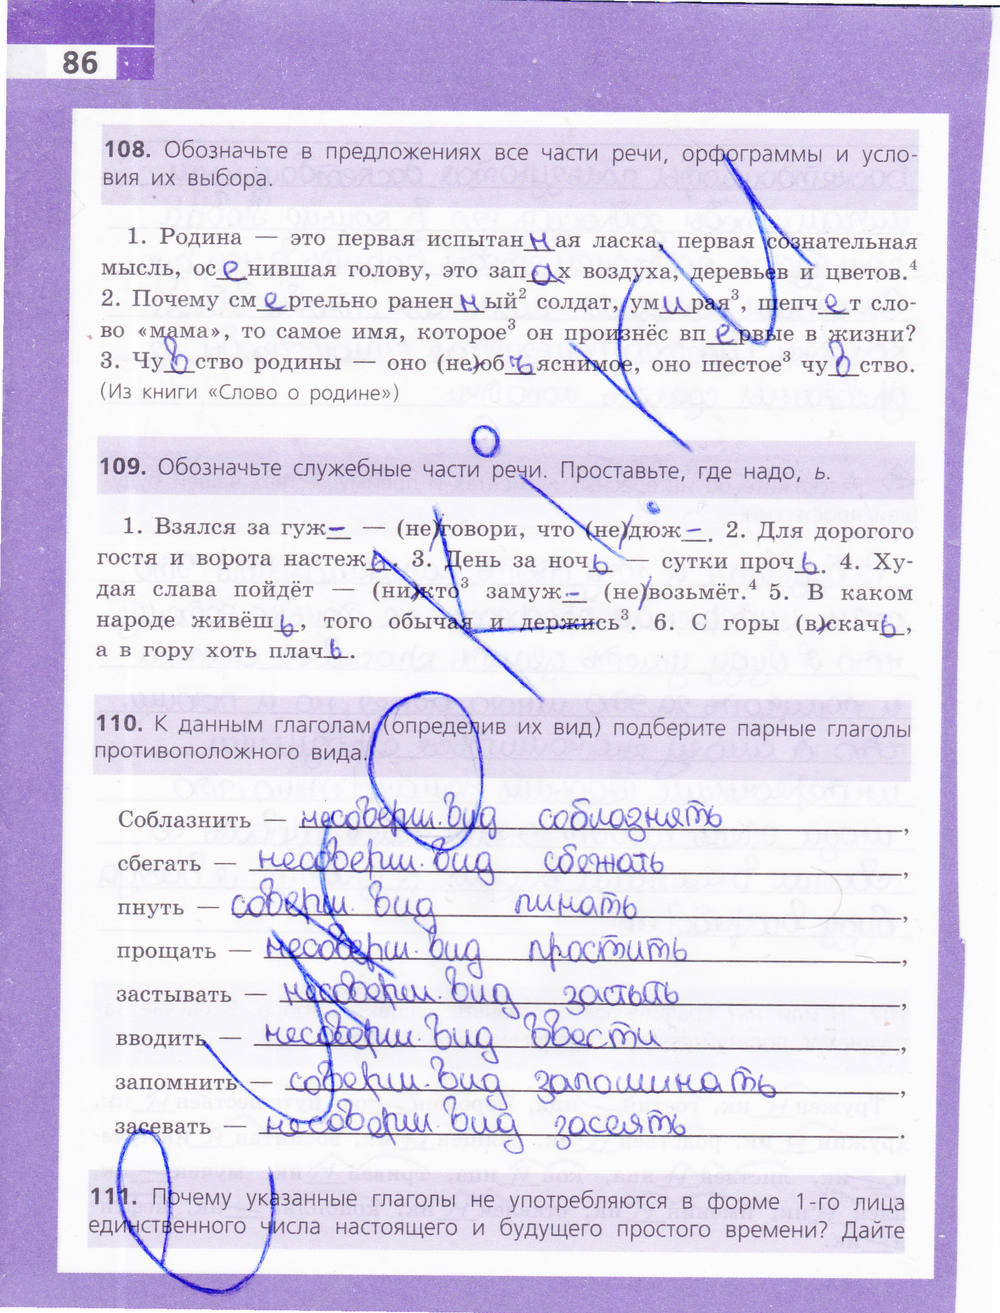 86
108. Обозначьте в предложениях все части речи, орфограммы и усло-
вия их выбора.
1. Родина — это первая испытанная ласка, первая сознательная
мысль, осенившая голову, это запах воздуха, деревьев и цветов.4
2. Почему смертельно раненный2 солдат, умирая3, шепчет сло-
во «мама», то самое имя, которое3 он произнёс впервые в жизни?
3. Чувство родины — оно (не)объяснимое, оно шестое3 чувство.
(Из книги «Слово о родине»)
109. Обозначьте служебные части речи. Проставьте, где надо, ь.
1. Взялся за гуж– — (не)говори, что (не)дюж–. 2. Для дорогого
гостя и ворота настежь. 3. День за ночь — сутки прочь. 4. Ху-
дая слава пойдёт — (ни)кто3 замуж– (не)возьмёт.4 5. В каком
народе живёшь, того обычая и держись3. 6. С горы (в)скачь,
а в гору хоть плачь.
110. К данным глаголам (определив их вид) подберите парные глаголы
противоположного вида.
Соблазнить — несоверш. вид соблазнять,
сбегать — несоверш. вид сбежать,
пнуть — соверш. вид пинать,
прощать — несоверш. вид простить,
застывать — несоверш. вид застыть,
вводить — несоверш. вид ввести,
запомнить — соверш. вид запоминать,
засевать — несоверш. вид засеять
111. Почему указанные глаголы не употребляются в форме 1-го лица
единственного числа настоящего и будущего простого времени? Дайте